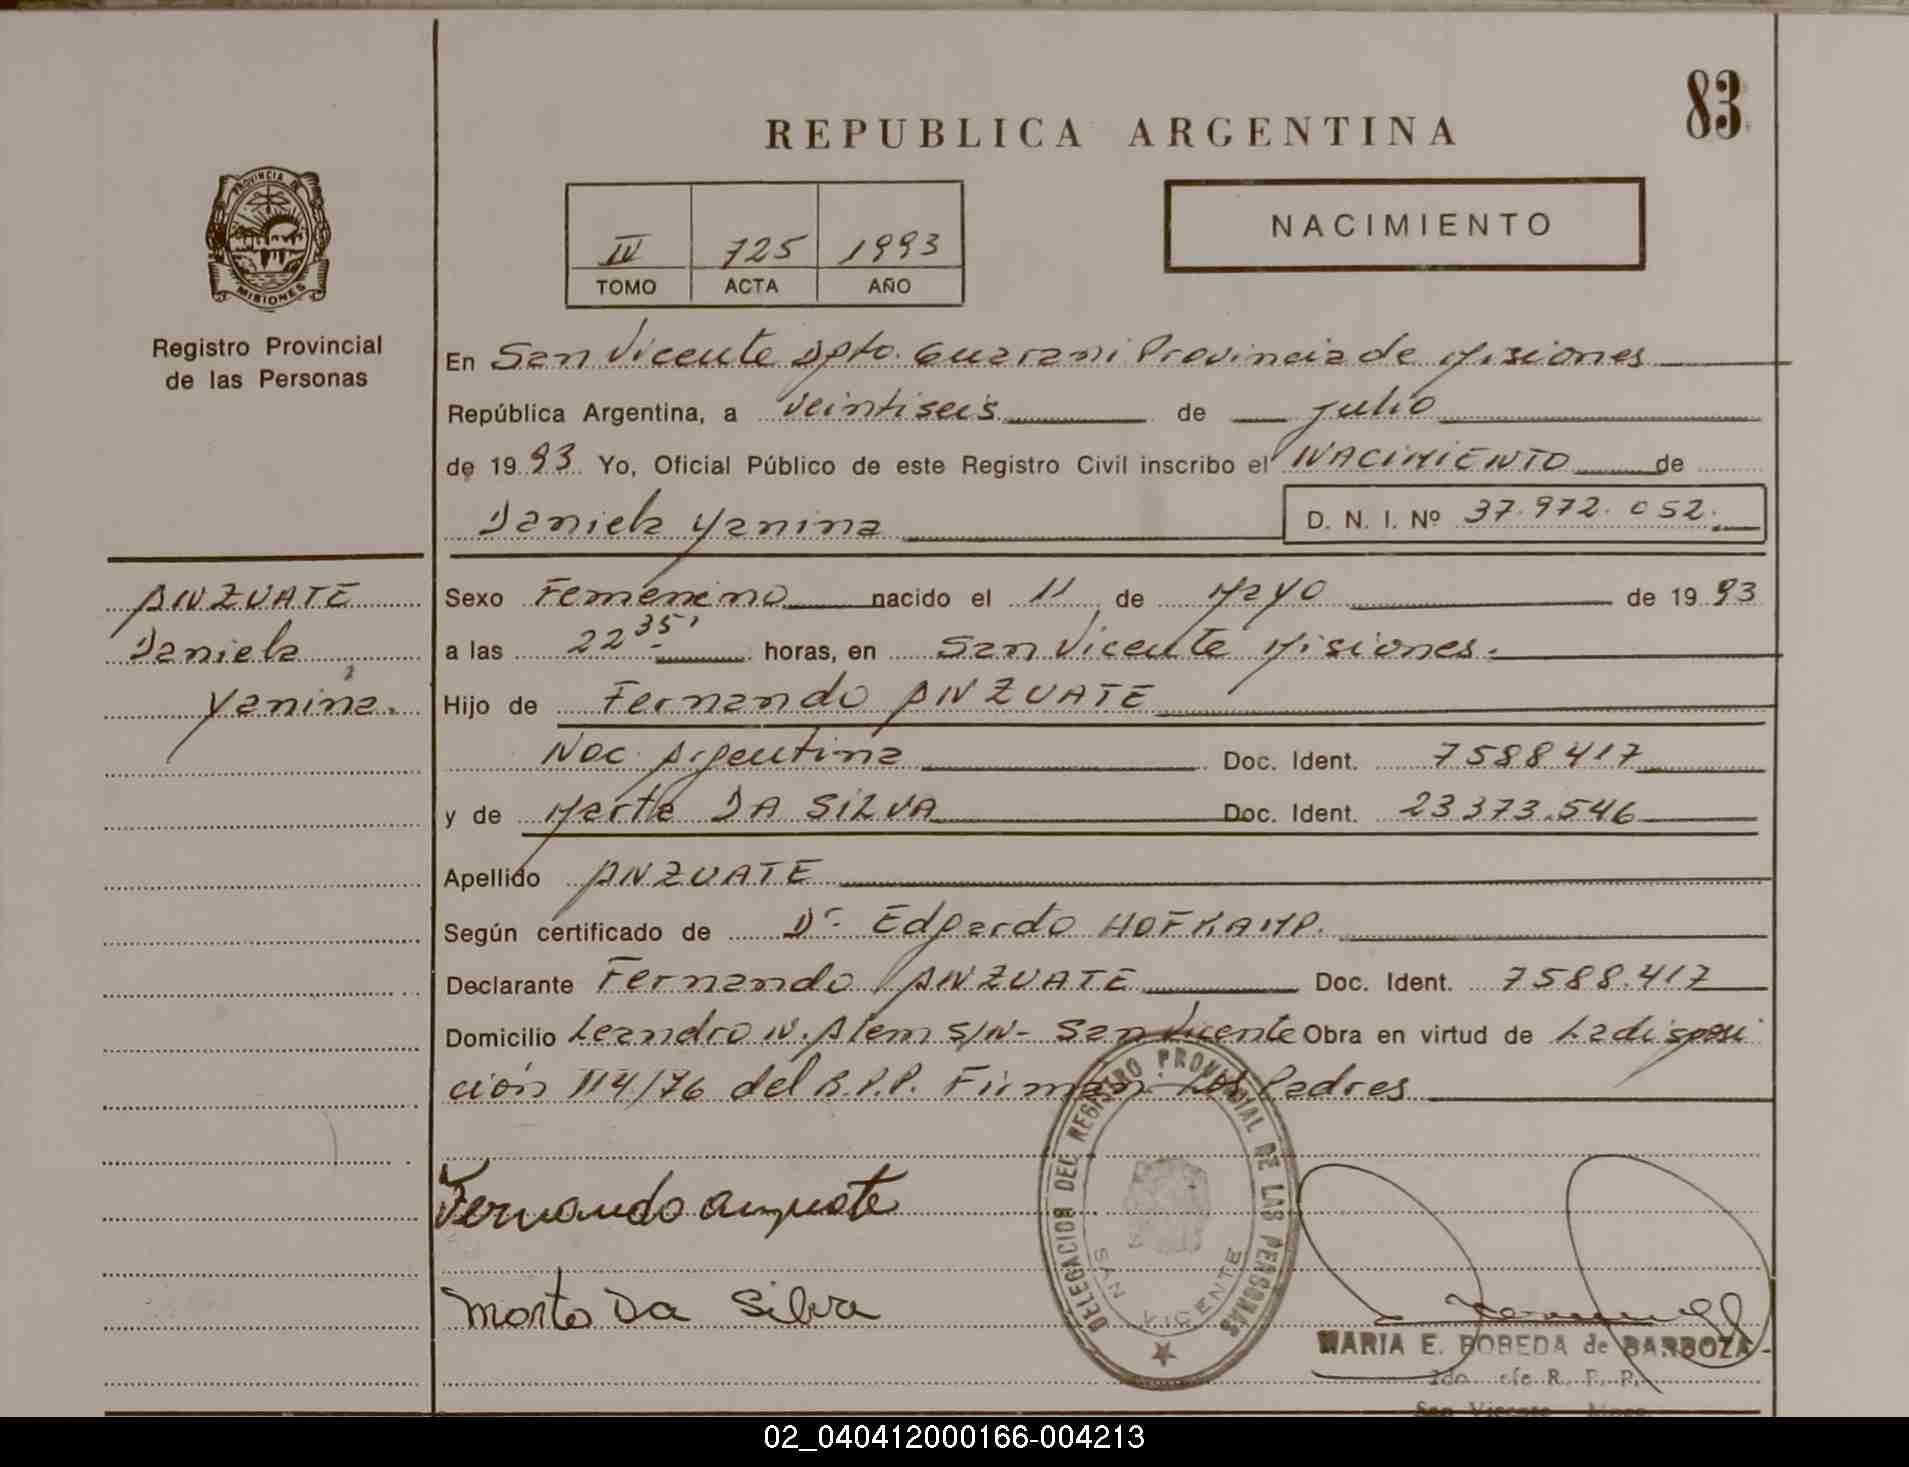 83
REPUBLICA ARGENTINA
NACIMIENTO
IV 725 1993
TOMO ACTA AÑO
PROVINCIA DE
MISIONES
Registro Provincial
de las Personas
En San Vicente Dpto. Guarani Provincia de Misiones
República Argentina, a veintiseis de julio
de 1993 Yo, Oficial Público de este Registro Civil inscribo el NACIMIENTO de
Daniela Yanina D. N. I. Nº 37.972.052.
ANZUATE
Daniela
Yanina.
Sexo Femenino nacido el 11 de Mayo de 1993
a las 22 35' horas, en San Vicente Misiones.
Hijo de Fernando ANZUATE
Nac. Argentina Doc. Ident. 7588417
y de Marta DA SILVA Doc. Ident. 23373.546
Apellido ANZUATE
Según certificado de Dr. Edgardo HOFKAMP.
Declarante Fernando ANZUATE Doc. Ident. 7588.417
Domicilio Leandro N. Alem S/N- San Vicente Obra en virtud de La disposi
ción 114/76 del R.P.P. Firman Los Padres
Fernando anzuate
Marta Da Silva
DELEGACION DEL REGISTRO PROVINCIAL DE LAS PERSONAS
SAN VICENTE
MARIA E. POBEDA de BARBOZA
R. P. P.
San Vicente
02_040412000166-004213